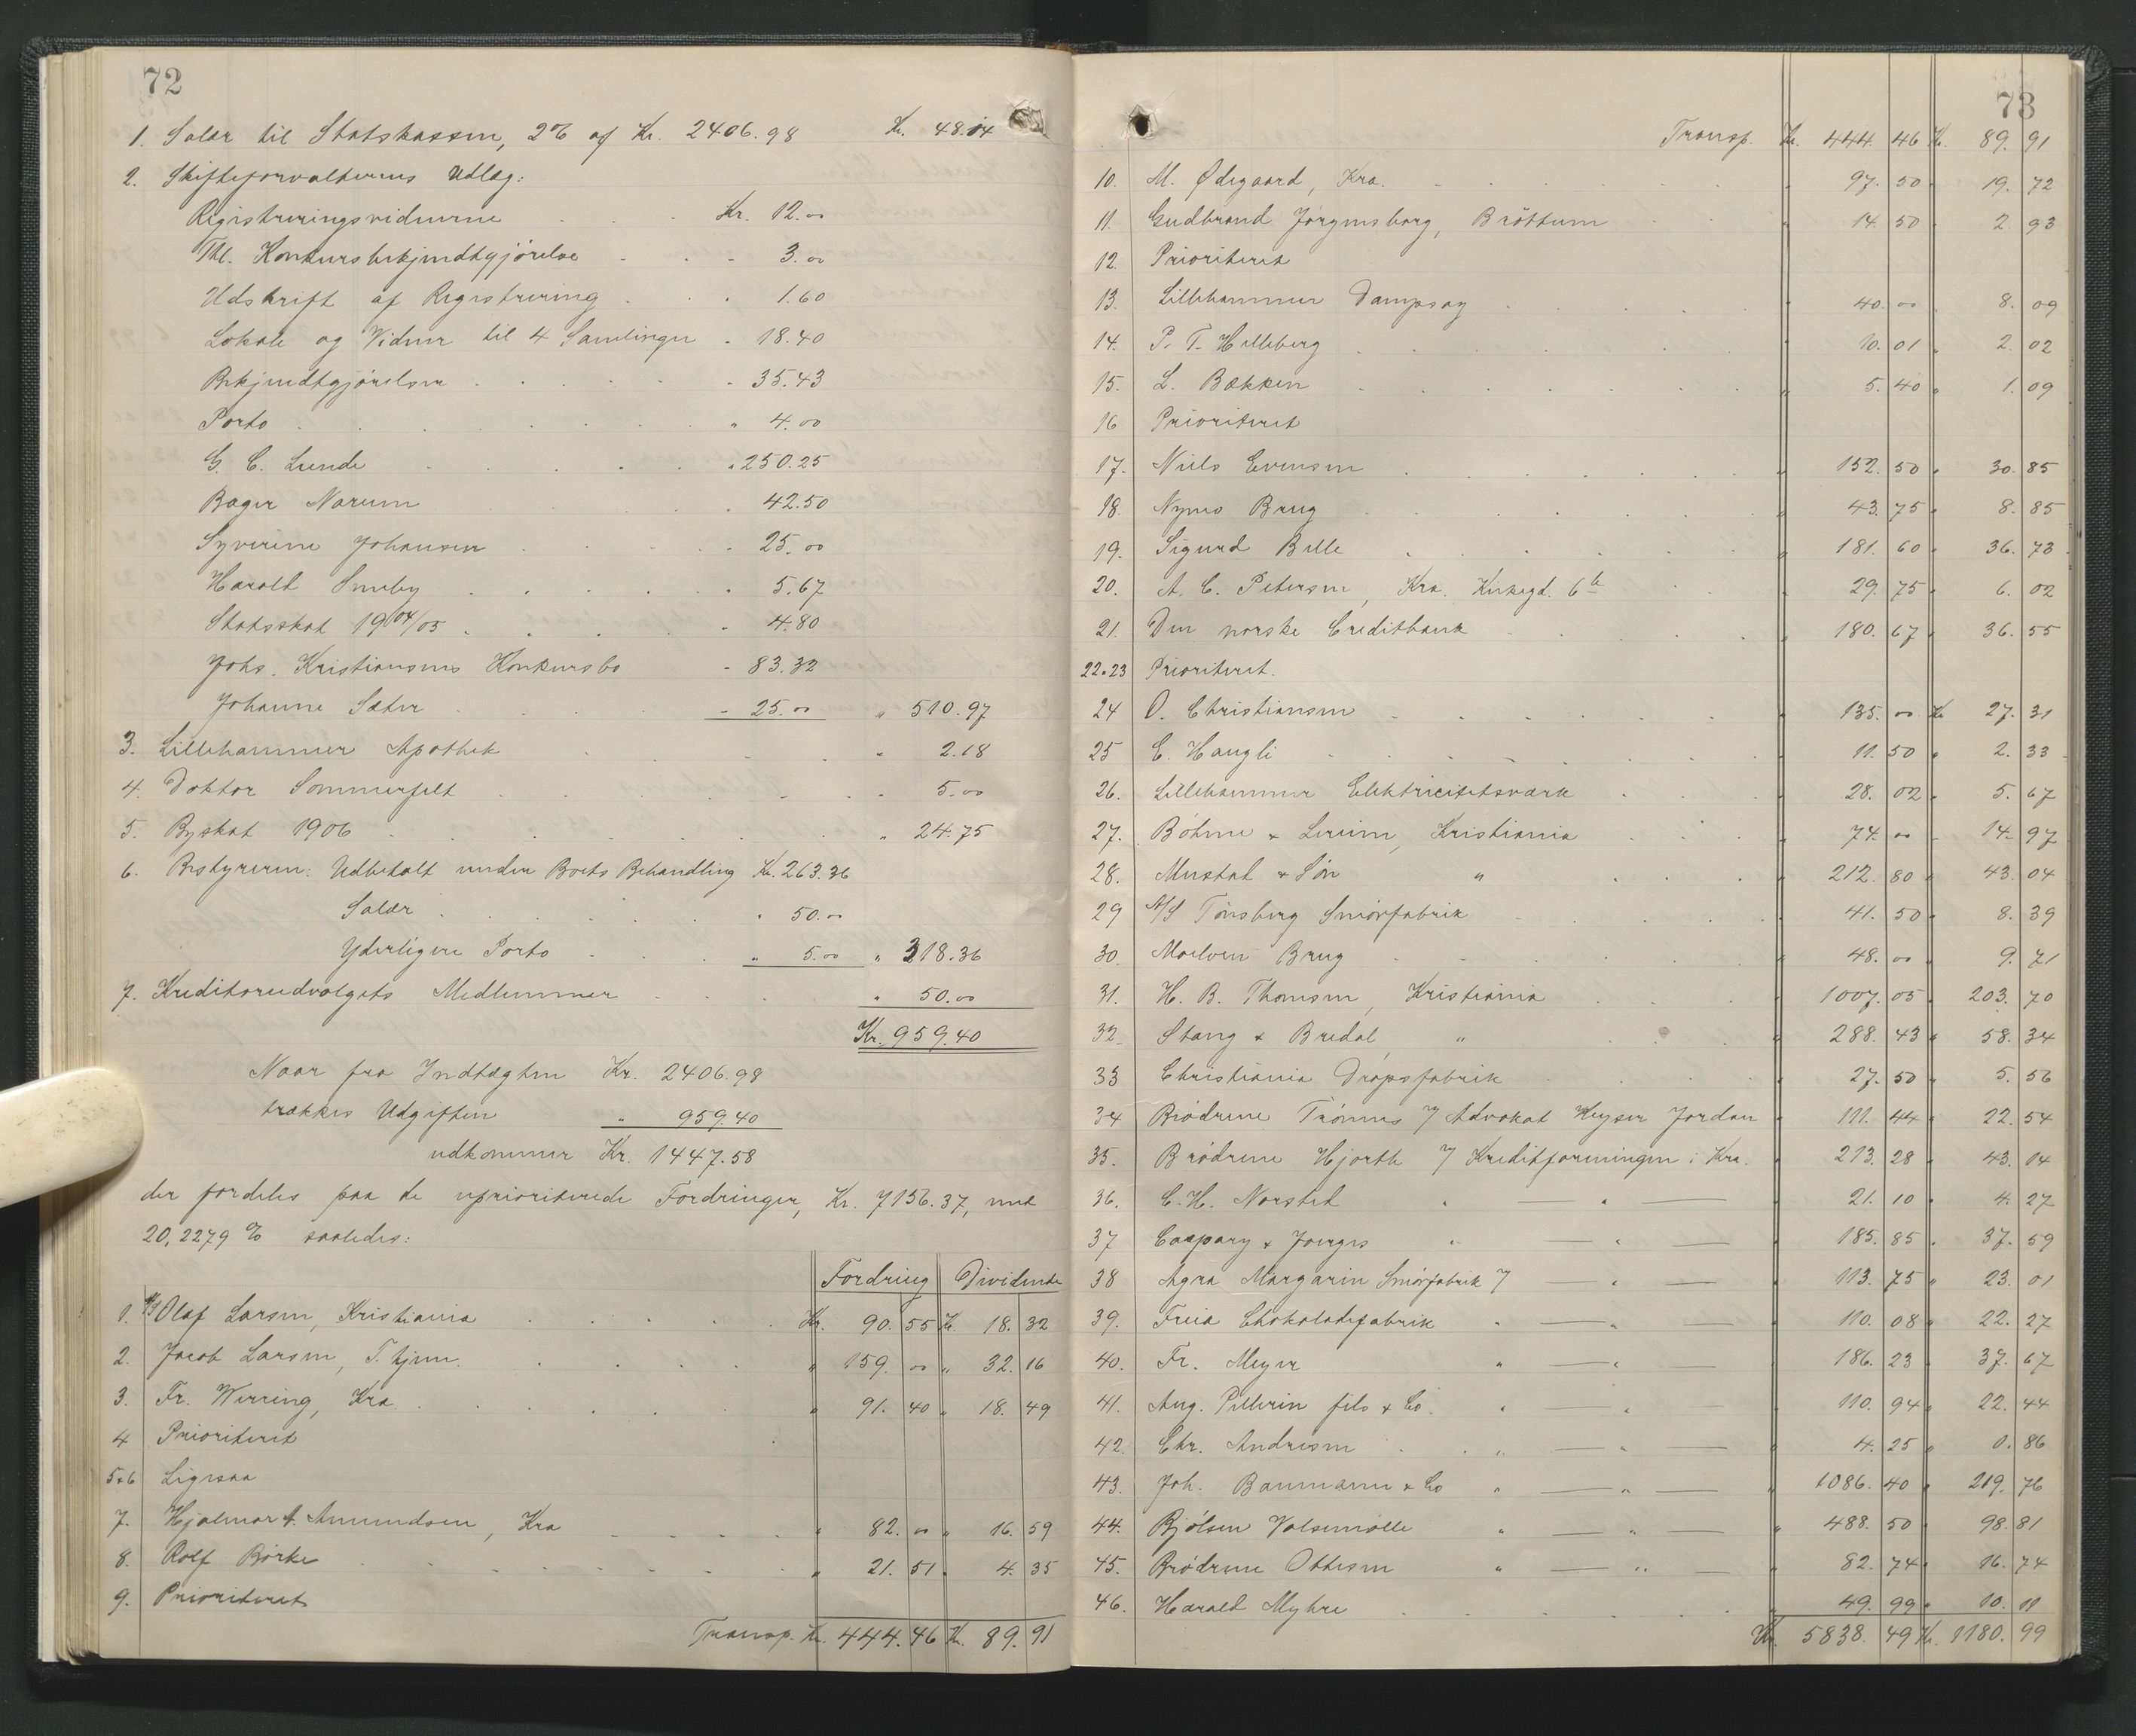 72
1. Salær til Statskassen, 2% af Kr. 2406.98 Kr. 48.14
2. Skifteforvalterens Udlæg:
Registreringsvidnerne Kr. 12.00
Thl. Konkursbekjendtgjørelse - 3.00
Udskrift af Registrering 1.60
Lokale og Vidner til 4 Samlinger - 18.40
Bekjendtgjørelser - 35.43
Porto " 4.00
G. C. Lunde " 250.25
Bager Narum 42.50
Syverine Johansen - 25.00
Harald Smeby 5.67
Statsskat 1904/05 - 4.80
Johs. Kristiansens Konkursbo - 83.32
Johanne Sæter - 25.00 " 510.97
3. Lillehammer Apothek " 2.18
4. Doktor Sommerfelt " 5.00
5. Byskat 1906 " 24.75
6. Bestyreren: Udbetalt under Boets Behandling Kr. 263.36
Salær " 50.00
Yderligere Porto " 5.00 " 318.36
7. Kreditorudvalgets Medlemmer " 50.00
Kr. 959.40
Naar fra Indtægten Kr. 2406.98
trækkes Udgiften " 959.40
udkommer Kr. 1447.58
der fordeles paa de uprioriterede Fordringer, Kr. 7156.37, med
20,2279 % saaledes:
Fordring Dividende
1. A/S Olaf Larsen, Kristiania Kr. 90.55 Kr. 18.32
2. Jacob Larsen, T.hjem. " 159.00 " 32.16
3. Fr. Werring, Kra. " 91.40 " 18.49
4 Prioriteret
5&6 Ligesaa
7. Hjalmar A. Amundsen, Kra " 82.00 " 16.59
8. Rolf Børke " 21.51 " 4.35
9. Prioriteret
Transp. Kr. 444.46 Kr. 89.91
73
Transp. Kr. 444.46 Kr. 89.91
10. M. Ødegaard, Kra. 97.50 19.72
11. Gudbrand Jørgensborg, Brøttum 14.50 2.93
12. Prioriteret
13. Lillehammer Dampsag 40.00 8.09
14. P. T. Helleberg 10.01 2.02
15. L. Bakken 5.40 1.09
16 Prioriteret
17. Niels Evensen 152.50 30.85
18. Nymo Brug 43.75 8.85
19. Sigurd Bille 181.60 36.73
20. A. C. Petersen, Kra. Kirkegd. 6b 29.75 6.02
21. Den norske Creditbank 180.67 36.55
22&23 Prioriteret.
24 O. Christiansen 135.00 Kr 27.31
25 E. Haugli 11.50 2.33
26. Lillehammer Elektricitetsværk 28.02 5.67
27. Böhme & Lereim, Kristiania 74.00 14.97
28. Mustad & Søn " 212.80 43.04
29 A/S Tønsberg Smørfabrik 41.50 8.39
30. Moelven Brug 48.00 9.71
31. H. B. Thomsen, Kristiania 1007.05 203.70
32. Stang & Bredal, " 288.43 58.34
33 Christiania Dropsfabrik 27.50 5.56
34 Brødrene Trønnes v/ Advokat Keyser Jordan 111.44 22.54
35. Brødrene Hjorth v/ Kreditforeningen i Kra. 213.28 43.14
36. C. H. Norsted " — " — 21.10 4.27
37 Caspary & Joerges " — " — 185.85 37.59
38 Agra Margarin Smørfabrik v/ — " — 113.75 23.01
39. Freia Chokoladefabrik " — " — 110.08 22.27
40. Fr. Meyer " — " — 186.23 37.67
41. Aug. Pellerin fils & Co. " — " — 110.94 22.44
42. Chr. Andresen " — " — 4.25 0.86
43. Joh. Baumann & Co " — " — 1086.40 219.76
44. Bjølsen Valsemølle " — " — 488.50 98.81
45. Brødrene Ottesen " — " — 82.74 16.74
46. Harald Myhre 49.99 10.11
Kr. 5838.49 Kr. 1180.99